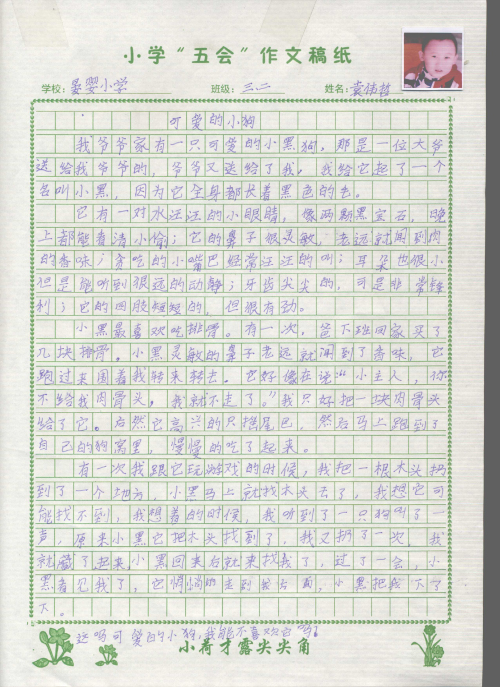 小学“五会”作文稿纸
学校：晏婴小学 班级：三.二 姓名：袁伟哲
可爱的小狗
我爷爷家有一只可爱的小黑狗，那是一位大爷
送给我爷爷的，爷爷又送给了我。我给它起了一个
名叫小黑，因为它全身都长着黑色的毛。
它有一对水汪汪的小眼睛，像两颗黑宝石，晚
上都能看清小偷；它的鼻子很灵敏，老远就闻到肉
的香味；贪吃的小嘴巴经常汪汪的叫；耳朵也很小
但是能听到很远的动静；牙齿尖尖的，可是非常锋
利；它的四肢短短的，但很有劲。
小黑最喜欢吃排骨。有一次，爸下班回家买了
几块排骨。小黑灵敏的鼻子老远就闻到了香味。它
跑过来围着我转来转去。它好像在说“小主人，你
不给我肉骨头，我就不走了。”我只好把一块肉骨头
给了它。后然它高兴的只摇尾巴，然后马上跑到了
自己的狗窝里，慢慢的吃了起来。
有一次我跟它玩游戏的时候，我把一根木头扔
到了一个地方，小黑马上就找木头去了，我想它可
能找不到，我想着的时候，我听到了一只狗叫了一
声，原来小黑它把木头找到了，我又扔了一次，我
就藏了起来，小黑回来后就来找我了，过了一会，小
黑看见我了，它悄悄的走到我后面，小黑把我下了
下。
这吗可爱的小狗，我能不喜欢它吗！
小荷才露尖尖角